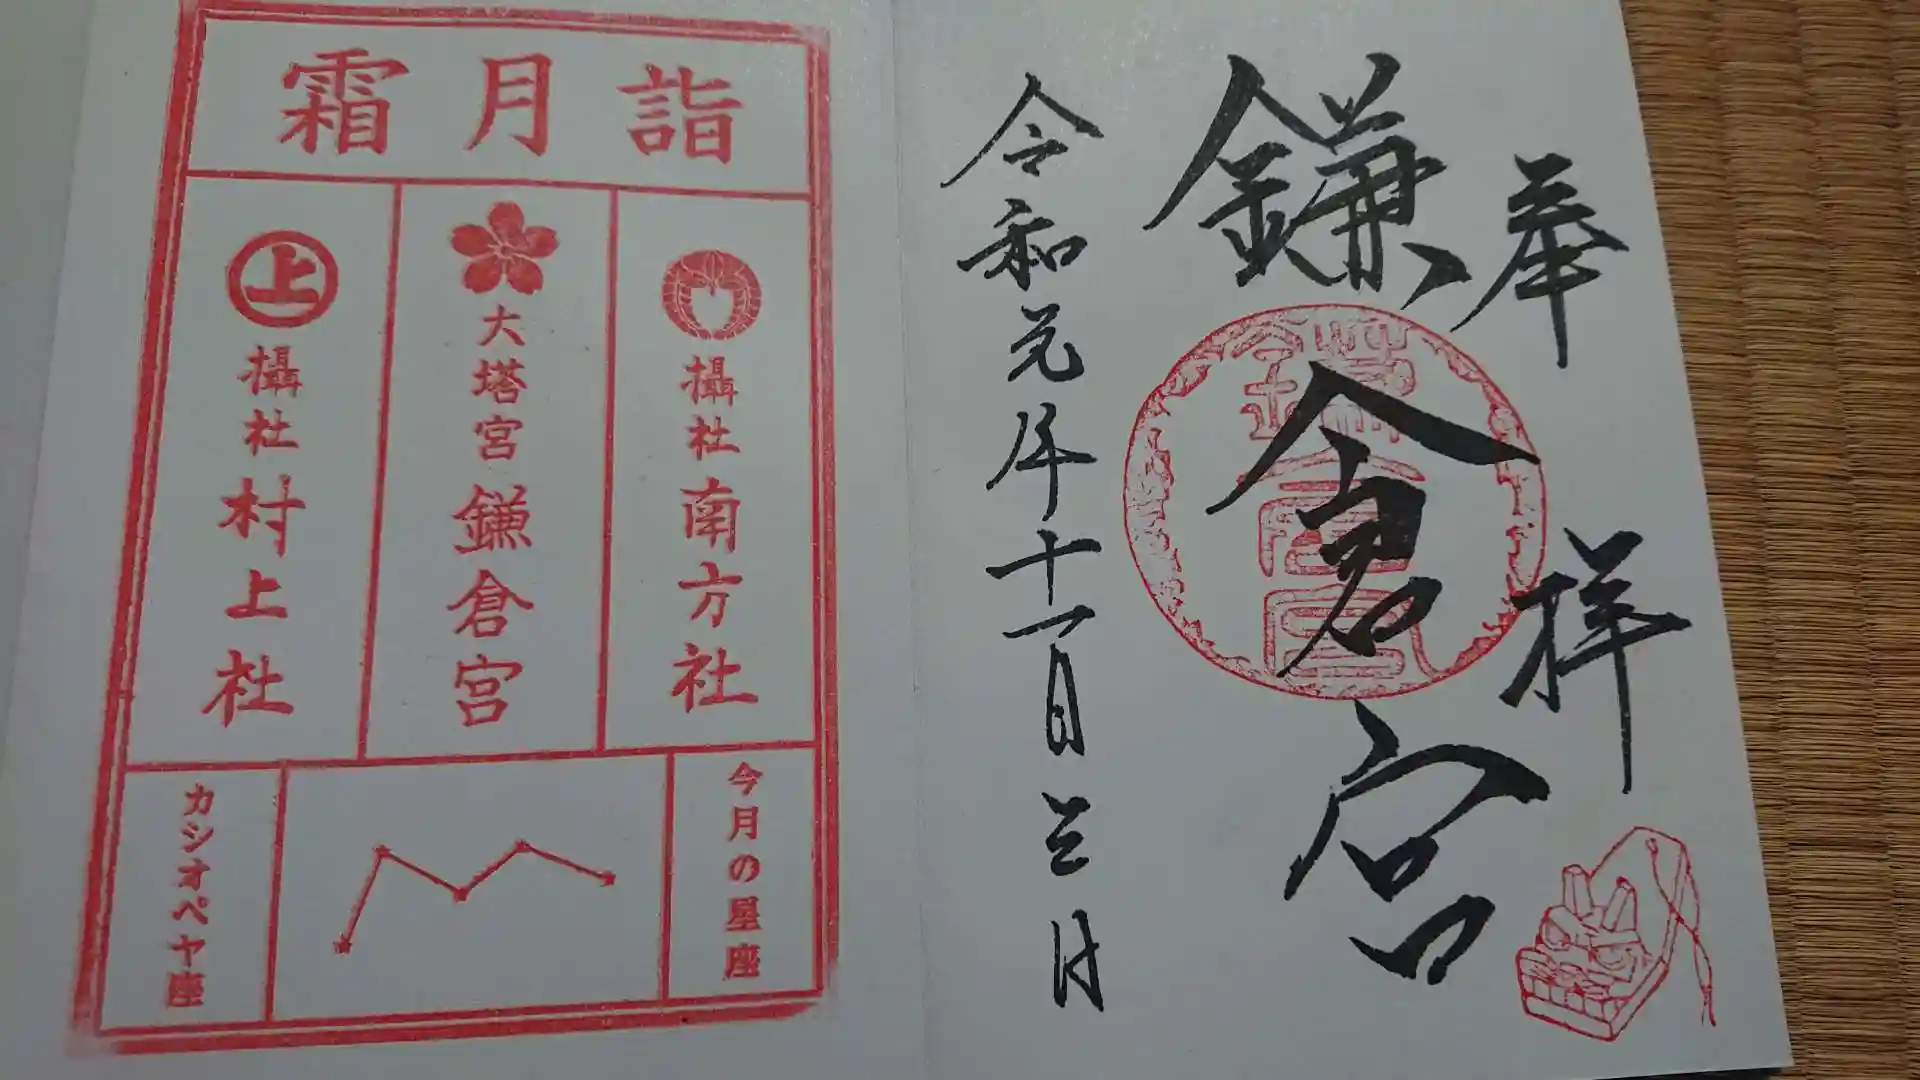 奉拝
鎌倉宮
令和元年十一月三日
鎌倉宮
霜月詣
攝社 南方社
大塔宮 鎌倉宮
上
攝社 村上社
今月の星座
カシオペヤ座